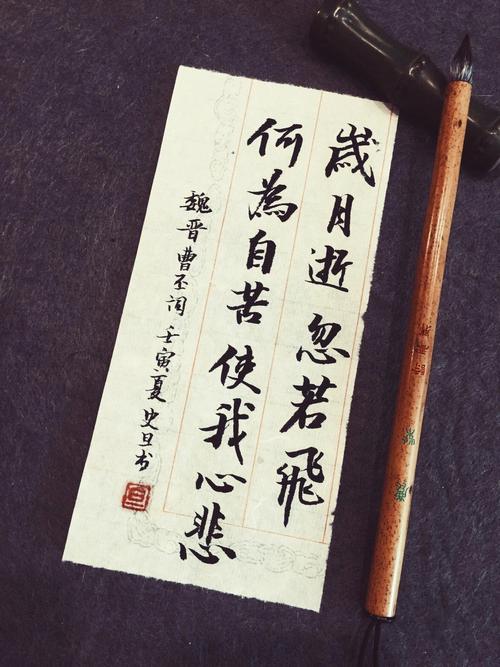 歲月逝忽若飛
何為自苦使我心悲
魏晋曹丕词 壬寅夏 史旦书
旦